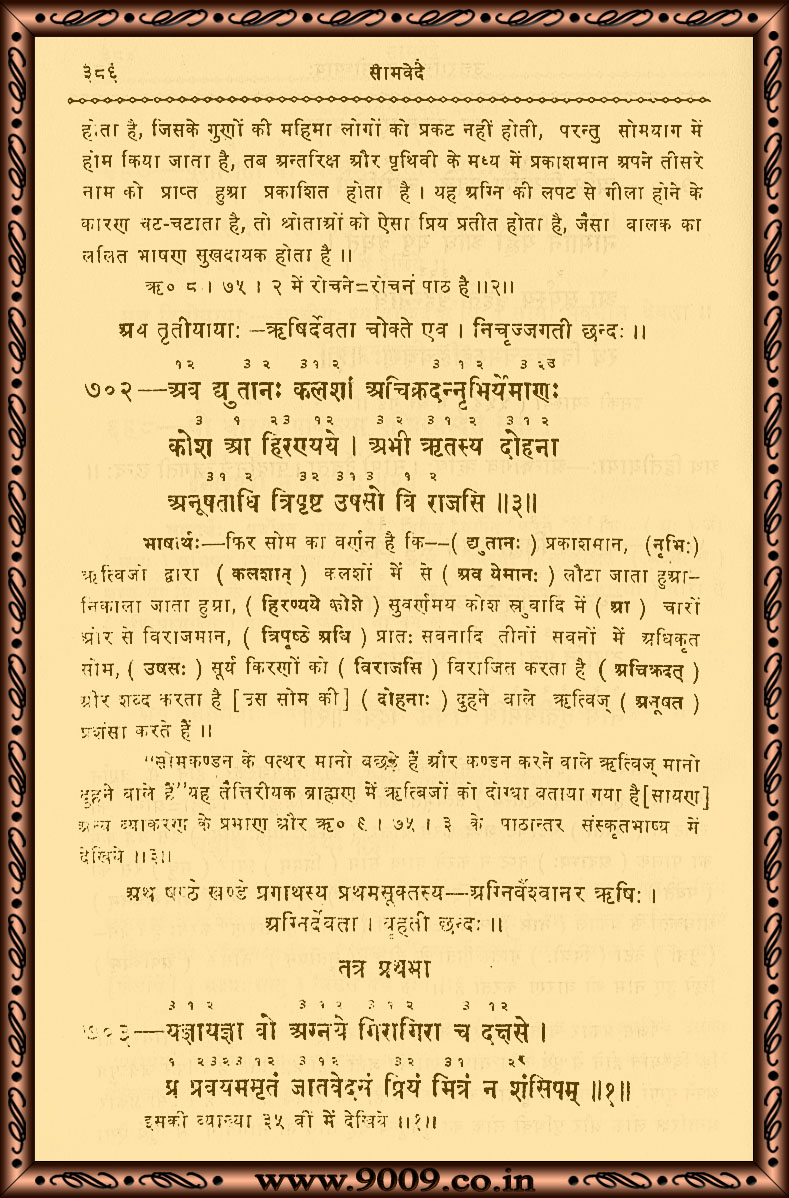 ३८६ सामवेदे
होता है, जिसके गुणों की महिमा लोगों को प्रकट नहीं होती, परन्तु सोमयाग में
होम किया जाता है, तब अन्तरिक्ष और पृथिवी के मध्य में प्रकाशमान अपने तीसरे
नाम को प्राप्त हुआ प्रकाशित होता है । यह अग्नि की लपट से गीला होने के
कारण चट-चटाता है, तो श्रोताओं को ऐसा प्रिय प्रतीत होता है, जैसा बालक का
ललित भाषण सुखदायक होता है ॥
ऋ० ८ । ७५ । २ में रोचने=रोचनं पाठ है ॥२॥
अथ तृतीयायाः —ऋषिर्देवता चोक्ते एव । निचृज्जगती छन्दः ॥
१ २ ३ २ ३१२ ३ १ २ ३ २उ
७०२—अव द्युतानः कलशां अचिक्रदन्नृभिर्येमाणः
३ १ २३ १२ ३ २ ३ १ २ ३ १ २
कोश आ हिरण्यये । अभी ऋतस्य दोहना
३१ २ ३२ ३१३ १ २
अनूषताधि त्रिपृष्ट उषसो वि राजसि ॥३॥
भाषार्थः—फिर सोम का वर्णन है कि--( द्युतानः ) प्रकाशमान, (नृभिः)
ऋत्विजों द्वारा ( कलशान् ) कलशों में से ( अव येमानः ) लौटा जाता हुआ–
निकाला जाता हुआ, ( हिरण्यये कोशे ) सुवर्णमय कोश स्रुवादि में ( आ ) चारों
ओर से विराजमान, ( त्रिपृष्ठे अधि ) प्रातः सवनादि तीनों सवनों में अधिकृत
सोम, ( उषसः ) सूर्य किरणों को ( विराजसि ) विराजित करता है ( अचिक्रदत् )
और शब्द करता है [उस सोम की] ( दोहनाः ) दुहने वाले ऋत्विज् ( अनूषत )
प्रशंसा करते हैं ॥
“सोमकण्डन के पत्थर मानो बछड़े हैं और कण्डन करने वाले ऋत्विज् मानो
दुहने वाले हैं” यह तैत्तिरीयक ब्राह्मण में ऋत्विजों को दोग्धा बताया गया है[सायण]
अन्य व्याकरण के प्रमाण और ऋ० ९ । ७५ । ३ के पाठान्तर संस्कृतभाष्य में
देखिये ॥३॥
अथ षष्ठे खण्डे प्रगाथस्य प्रथमसूक्तस्य—अग्निर्वैश्वानर ऋषिः ।
अग्निर्देवता । बृहती छन्दः ॥
तत्र प्रथमा
३ १ २ ३ १ २ ३ १ २ ३ १२
७०३—यज्ञायज्ञा वो अग्नये गिरागिरा च दक्षसे ।
१ २३२३ १२ ३१२ ३२ ३१ २र
प्र प्रवयममृतं जातवेदसं प्रियं मित्रं न शंसिषम् ॥१॥
इसकी व्याख्या ३५ वीं में देखिये ॥१॥
www.9009.co.in